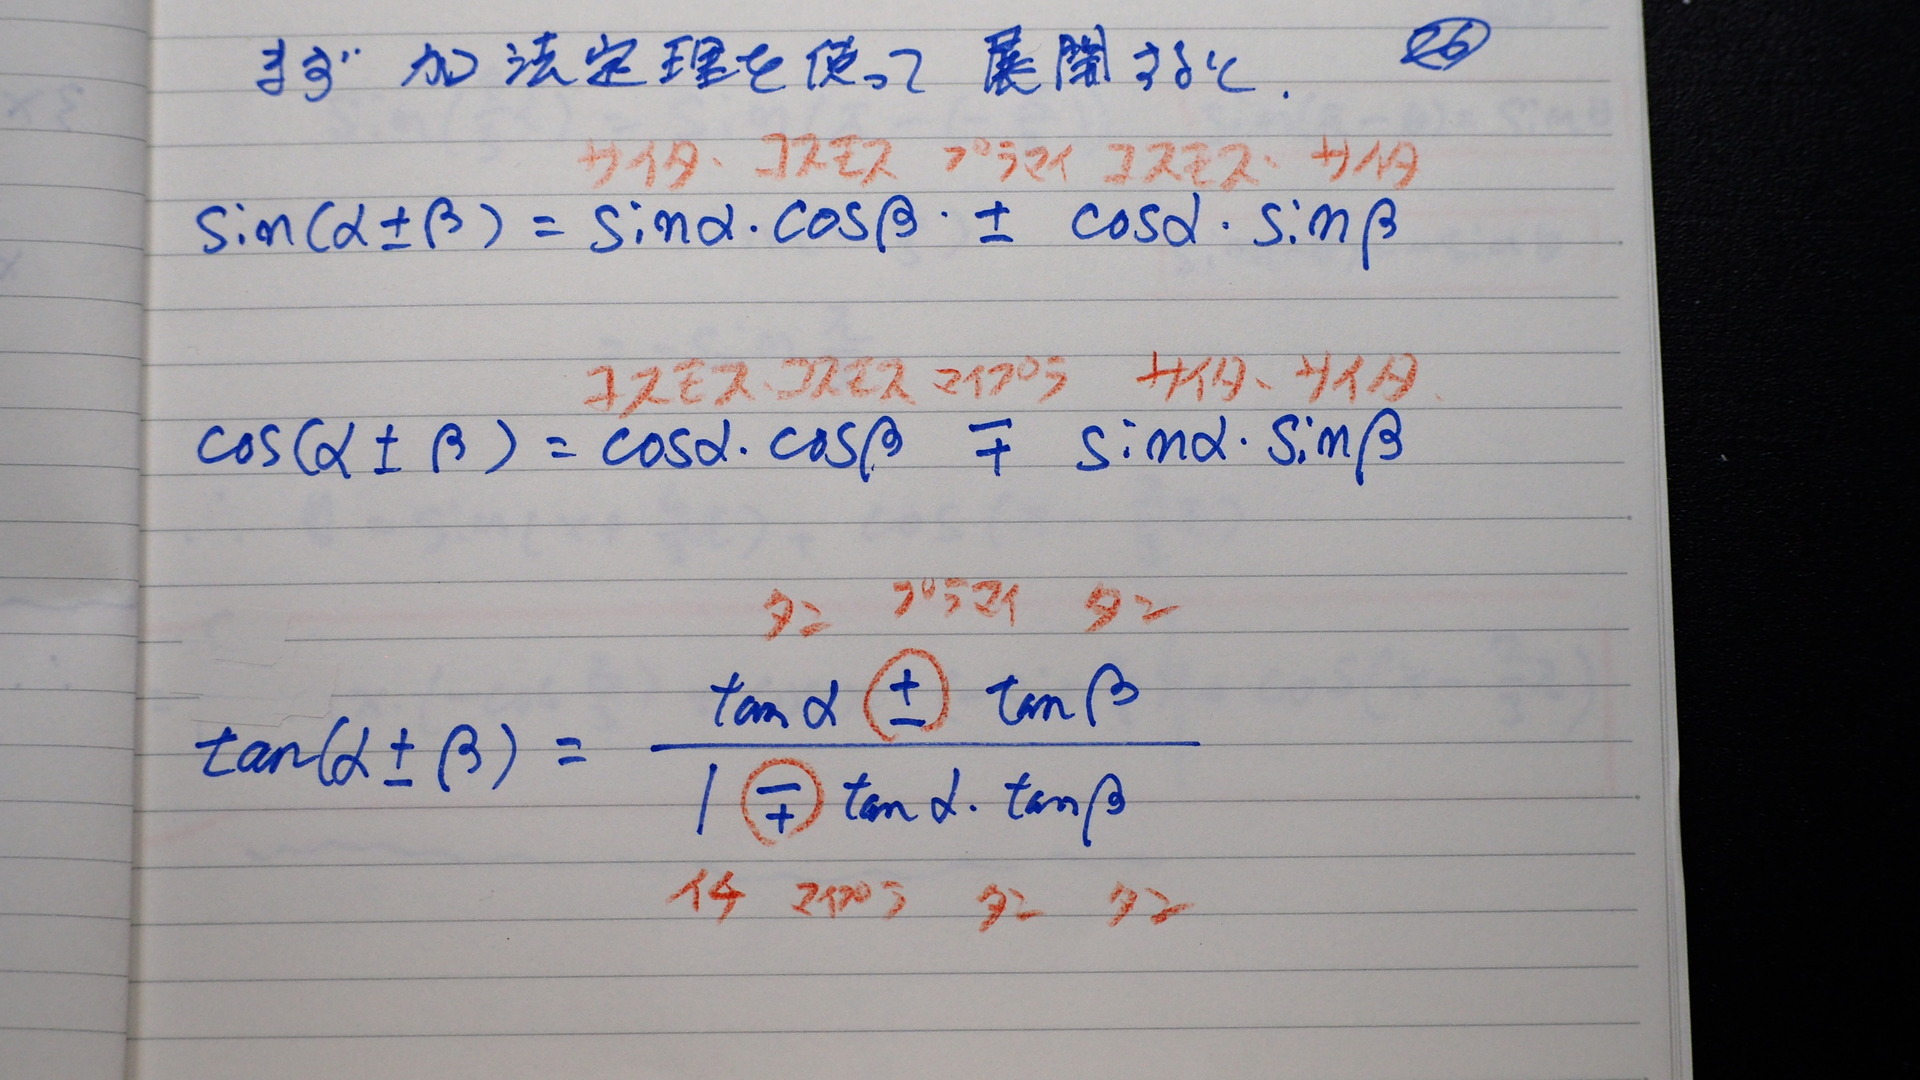 まず 加法定理を使って 展開すると. 26
サイタ・コスモス プラマイ コスモス・サイタ
sin(α±β) = sinα・cosβ・± cosα・sinβ
コスモス・コスモス マイプラ サイタ・サイタ
cos(α±β) = cosα・cosβ ∓ sinα・sinβ
タン プラマイ タン
tanα ± tanβ
tan(α±β) =
1 ∓ tanα・tanβ
イチ マイプラ タン タン